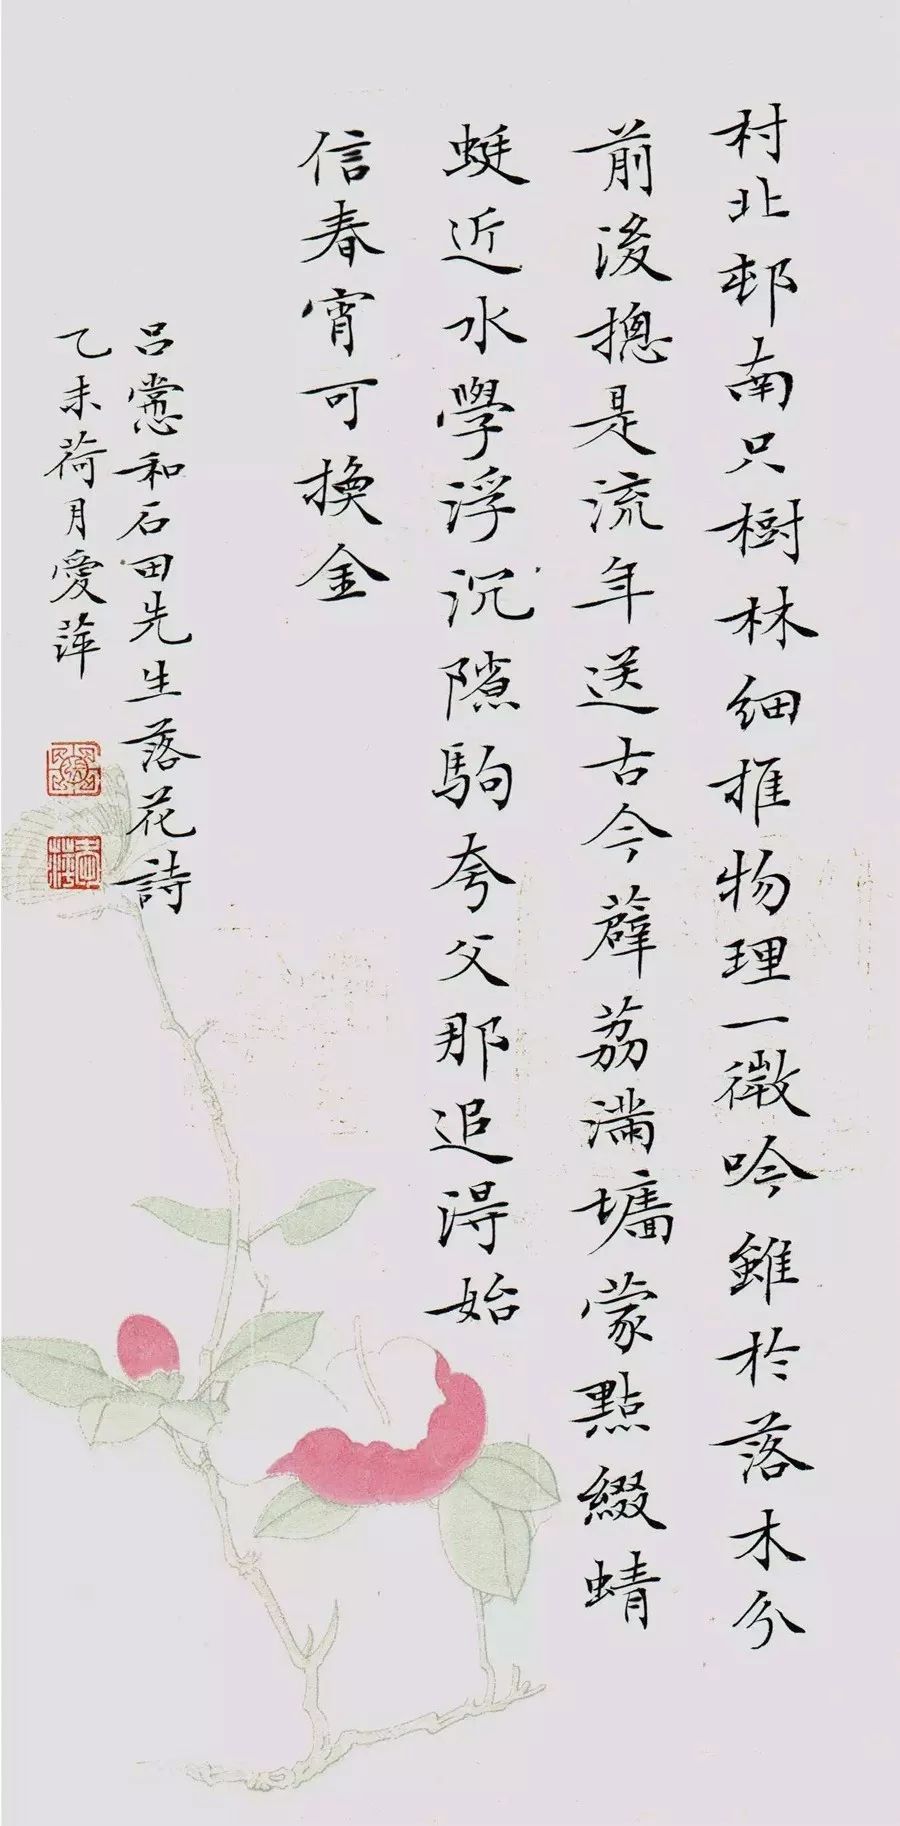 村北邨南只樹林細推物理一微吟雖於落木分
前後摠是流年送古今薜荔滿墻蒙點綴蜻
蜓近水學浮沉隙駒夸父那追得始
信春宵可換金
呂㦂和石田先生落花詩
乙未荷月愛萍